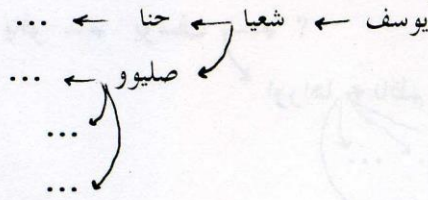 يوسف ← شعيا ← حنا ← ...
صليوو ← ...
...
...